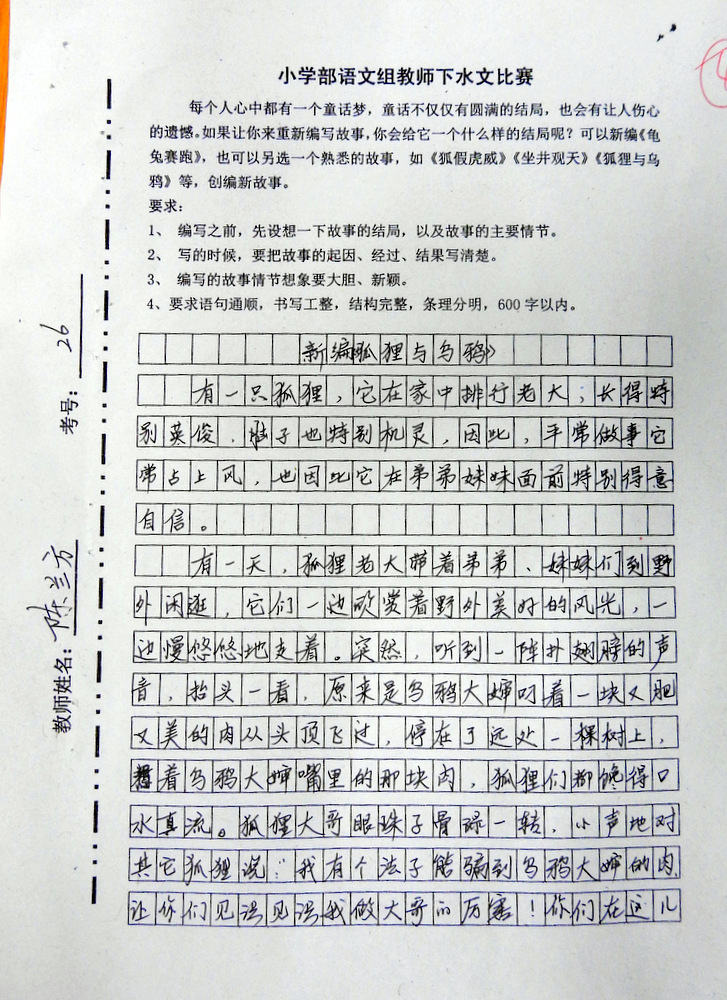 小学部语文组教师下水文比赛
每个人心中都有一个童话梦，童话不仅仅有圆满的结局，也会有让人伤心
的遗憾。如果让你来重新编写故事，你会给它一个什么样的结局呢？可以新编《龟
兔赛跑》，也可以另选一个熟悉的故事，如《狐假虎威》《坐井观天》《狐狸与乌
鸦》等，创编新故事。
要求：
1、 编写之前，先设想一下故事的结局，以及故事的主要情节。
2、 写的时候，要把故事的起因、经过、结果写清楚。
3、 编写的故事情节想象要大胆、新颖。
4、要求语句通顺，书写工整，结构完整，条理分明，600字以内。
考号：26
教师姓名：陈兰方
新编《狐狸与乌鸦》
有一只狐狸，它在家中排行老大，长得特
别英俊，脑子也特别机灵，因此，平常做事它
常占上风，也因此它在弟弟妹妹面前特别得意
自信。
有一天，狐狸老大带着弟弟、妹妹们到野
外闲逛，它们一边欣赏着野外美好的风光，一
边慢悠悠地走着。突然，听到一阵扑翅膀的声
音，抬头一看，原来是乌鸦大婶叼着一块又肥
又美的肉从头顶飞过，停在了远处一棵树上，
想着乌鸦大婶嘴里的那块肉，狐狸们都馋得口
水直流。狐狸大哥眼珠子骨碌一转，小声地对
其它狐狸说："我有个法子能骗到乌鸦大婶的肉，
让你们见识见识我做大哥的厉害！你们在这儿